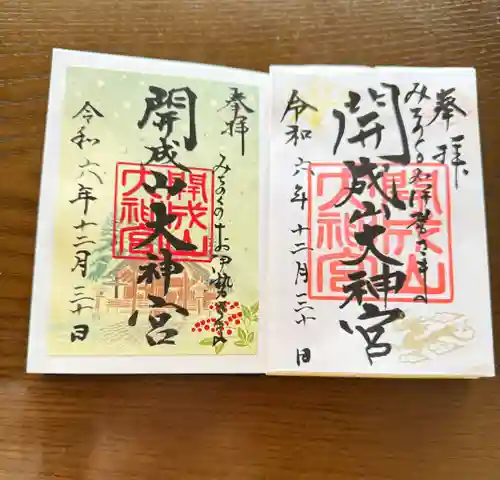 奉拝
みちのくの
開成山大神宮
開成山
大神宮
令和六年十二月三十日
奉拝
みちのくのお伊勢さま
開成山大神宮
開成山
大神宮
令和六年十二月三十日